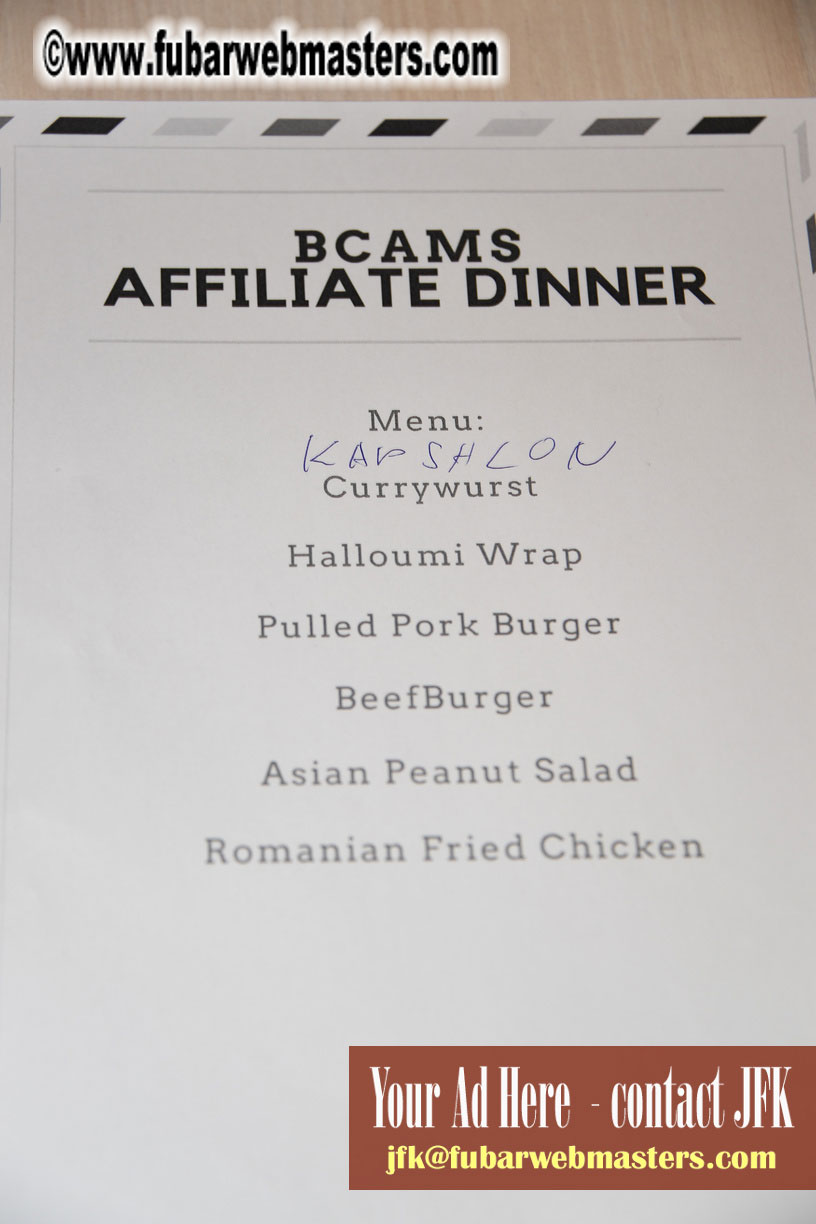 ©www.fubarwebmasters.com
BCAMS
AFFILIATE DINNER
Menu:
KAPSHLON
Currywurst
Halloumi Wrap
Pulled Pork Burger
BeefBurger
Asian Peanut Salad
Romanian Fried Chicken
Your Ad Here - contact JFK
jfk@fubarwebmasters.com